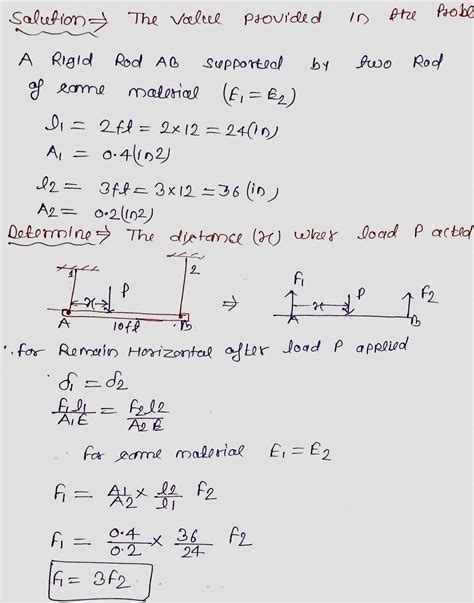 Solution ⇒ The value provided in the Proble
A Rigid Rod AB supported by two Rod
of same material (E₁ = E₂)
l₁ = 2ft = 2×12 = 24(in)
A₁ = 0.4(in2)
l₂ = 3ft = 3×12 = 36 (in)
A2 = 0.2(in2)
Determine ⇒ The distance (x) when load P acted
1 2
x P
A 10ft B
⇒
F₁ x P F₂
A B
∴ for Remain Horizontal after load P applied
δ₁ = δ₂
F₁l₁/A₁E = F₂l₂/A₂E
∴ for same material E₁ = E₂
F₁ = A₁/A₂ × l₂/l₁ F₂
F₁ = 0.4/0.2 × 36/24 F₂
F₁ = 3F₂